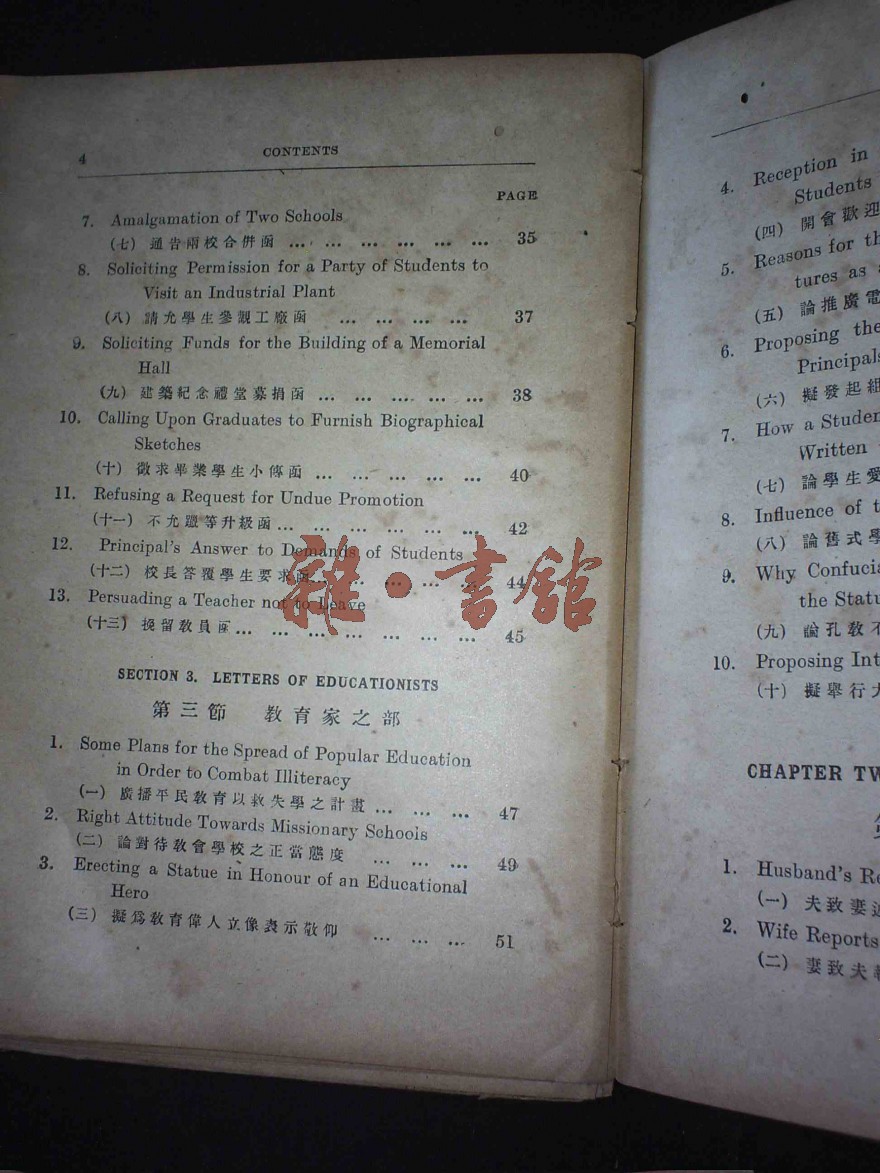 4 CONTENTS
PAGE
7. Amalgamation of Two Schools
(七) 通告兩校合併函 ... ... ... ... ... ... 35
8. Soliciting Permission for a Party of Students to
Visit an Industrial Plant
(八) 請允學生參觀工廠函 ... ... ... ... 37
9. Soliciting Funds for the Building of a Memorial
Hall
(九) 建築紀念禮堂募捐函 ... ... ... ... ... 38
10. Calling Upon Graduates to Furnish Biographical
Sketches
(十) 徵求畢業學生小傳函 ... ... ... ... ... 40
11. Refusing a Request for Undue Promotion
(十一) 不允躐等升級函 ... ... ... ... ... ... 42
12. Principal's Answer to Demands of Students
(十二) 校長答覆學生要求函 ... ... ... ... ... 44
13. Persuading a Teacher not to Leave
(十三) 挽留教員函 ... ... ... ... ... ... ... 45
雜·書館
SECTION 3. LETTERS OF EDUCATIONISTS
第三節 教育家之部
1. Some Plans for the Spread of Popular Education
in Order to Combat Illiteracy
(一) 廣播平民教育以救失學之計畫 ... ... ... 47
2. Right Attitude Towards Missionary Schools
(二) 論對待教會學校之正當態度 ... ... ... 49
3. Erecting a Statue in Honour of an Educational
Hero
(三) 擬爲教育偉人立像表示敬仰 ... ... ... 51
4. Reception in
Students
(四) 開會歡迎
5. Reasons for th
tures as
(五) 論推廣電
6. Proposing the
Principals
(六) 擬發起組
7. How a Studen
Written
(七) 論學生愛
8. Influence of t
(八) 論舊式學
9. Why Confucia
the Statu
(九) 論孔教不
10. Proposing Int
(十) 擬舉行大
CHAPTER TW
1. Husband's Re
(一) 夫致妻述
2. Wife Reports
(二) 妻致夫報